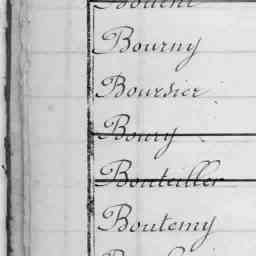 Bourny
Boursier
Boury
Bouteiller
Boutemy